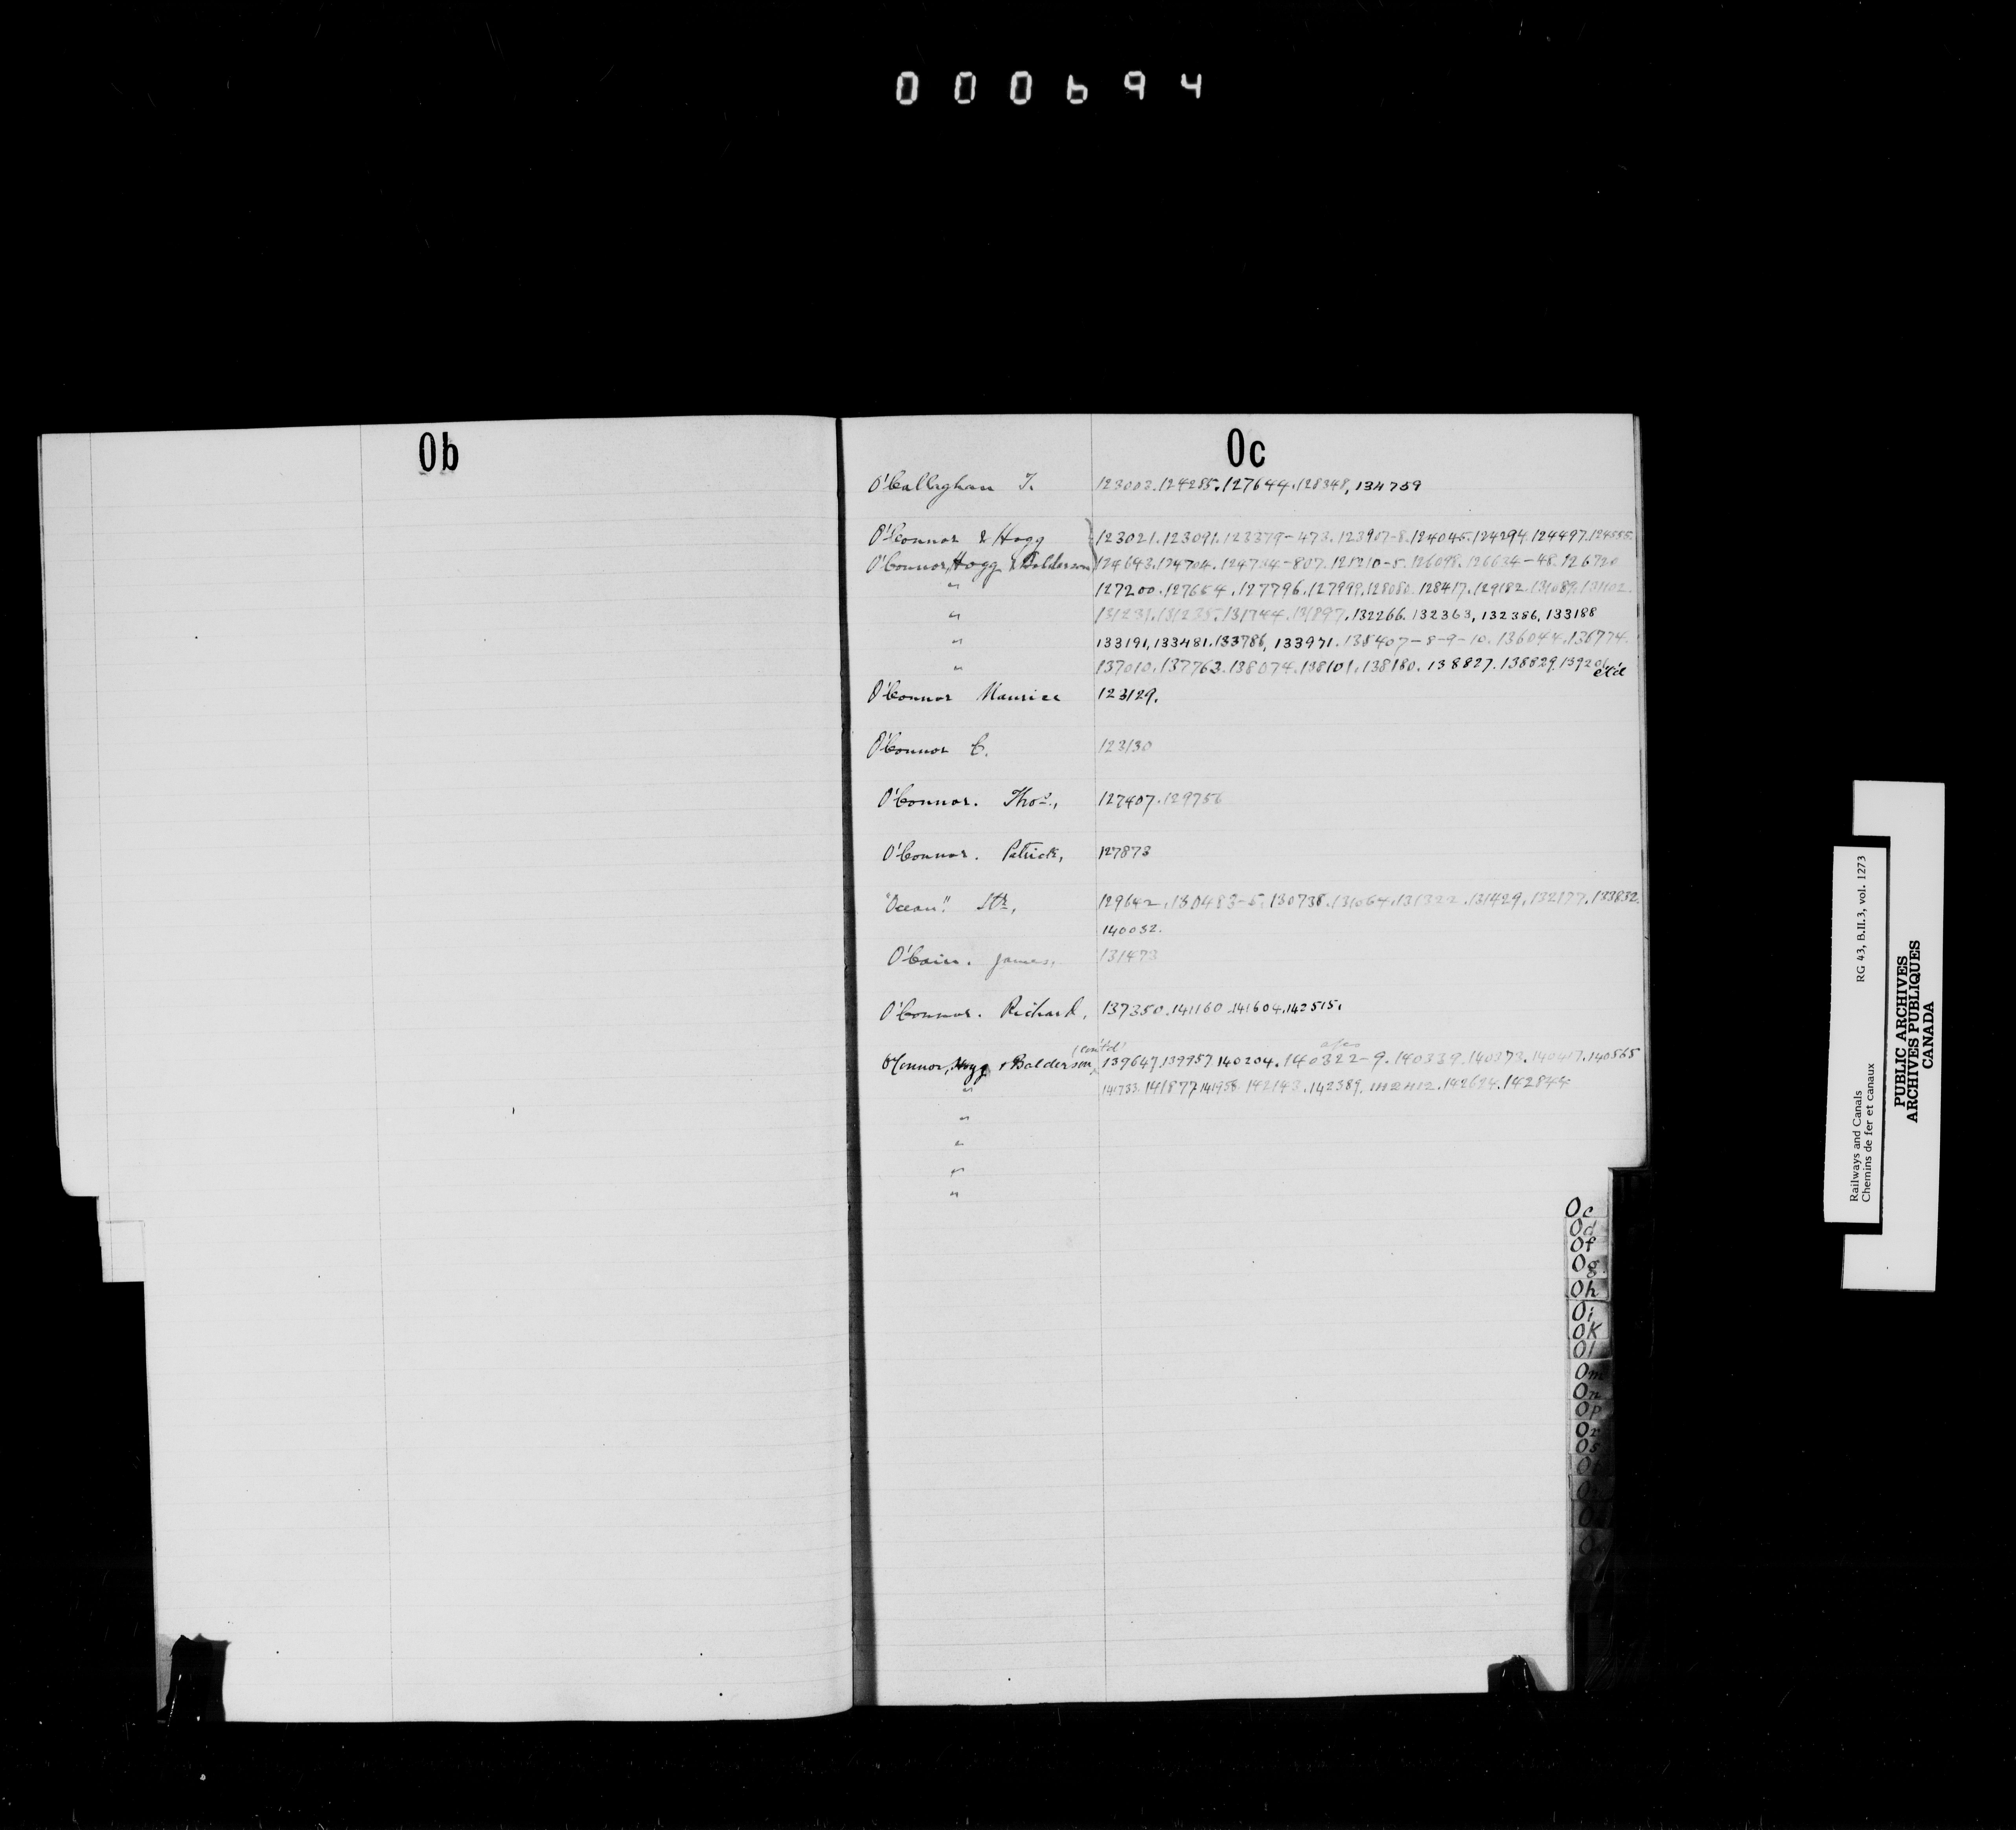 000694
Ob
Oc
O'Callaghan T. 123003. 124285. 127644. 128348, 134759
O'Connor & Hogg 123021. 123091. 123379-473. 123907-8. 124045. 124294. 124497. 124555.
O'Connor, Hogg & Balderson 124643. 124704. 124734-807. 125210-5. 126098. 126634-48. 126720
" 127200. 127654. 127796. 127999. 128080. 128417. 129182. 131089. 131102.
" 131231. 131235. 131744. 131897. 132266. 132363, 132386, 133188
" 133191, 133481. 133786, 133971. 135407-8-9-10. 136044. 136774.
" 137010. 137763. 138074. 138101. 138180. 138827. 138829. 139206
ct'd
O'Connor Maurice 123129.
O'Connor C. 123130
O'Connor. Thos., 127407. 129756
O'Connor. Patrick, 127873
"Ocean". Str, 129642. 130483-5. 130738. 131064. 131322. 131429. 132177. 133832.
140032.
O'Cain. James, 131473
O'Connor. Richard, 137350. 141160. 141604. 142515.
(cont'd)
O'Connor, Hogg & Balderson, 139647. 139957. 140204. 140322-9. 140339. 140373. 140417. 140565
" 141733. 141877. 141958. 142143. 142389. 142412. 142624. 142844
"
"
"
"
Oc
Od
Of
Og
Oh
Oi
OK
Ol
Om
On
Op
Or
Os
Railways and Canals RG 43, B.II.3, vol. 1273
Chemins de fer et canaux
PUBLIC ARCHIVES
ARCHIVES PUBLIQUES
CANADA